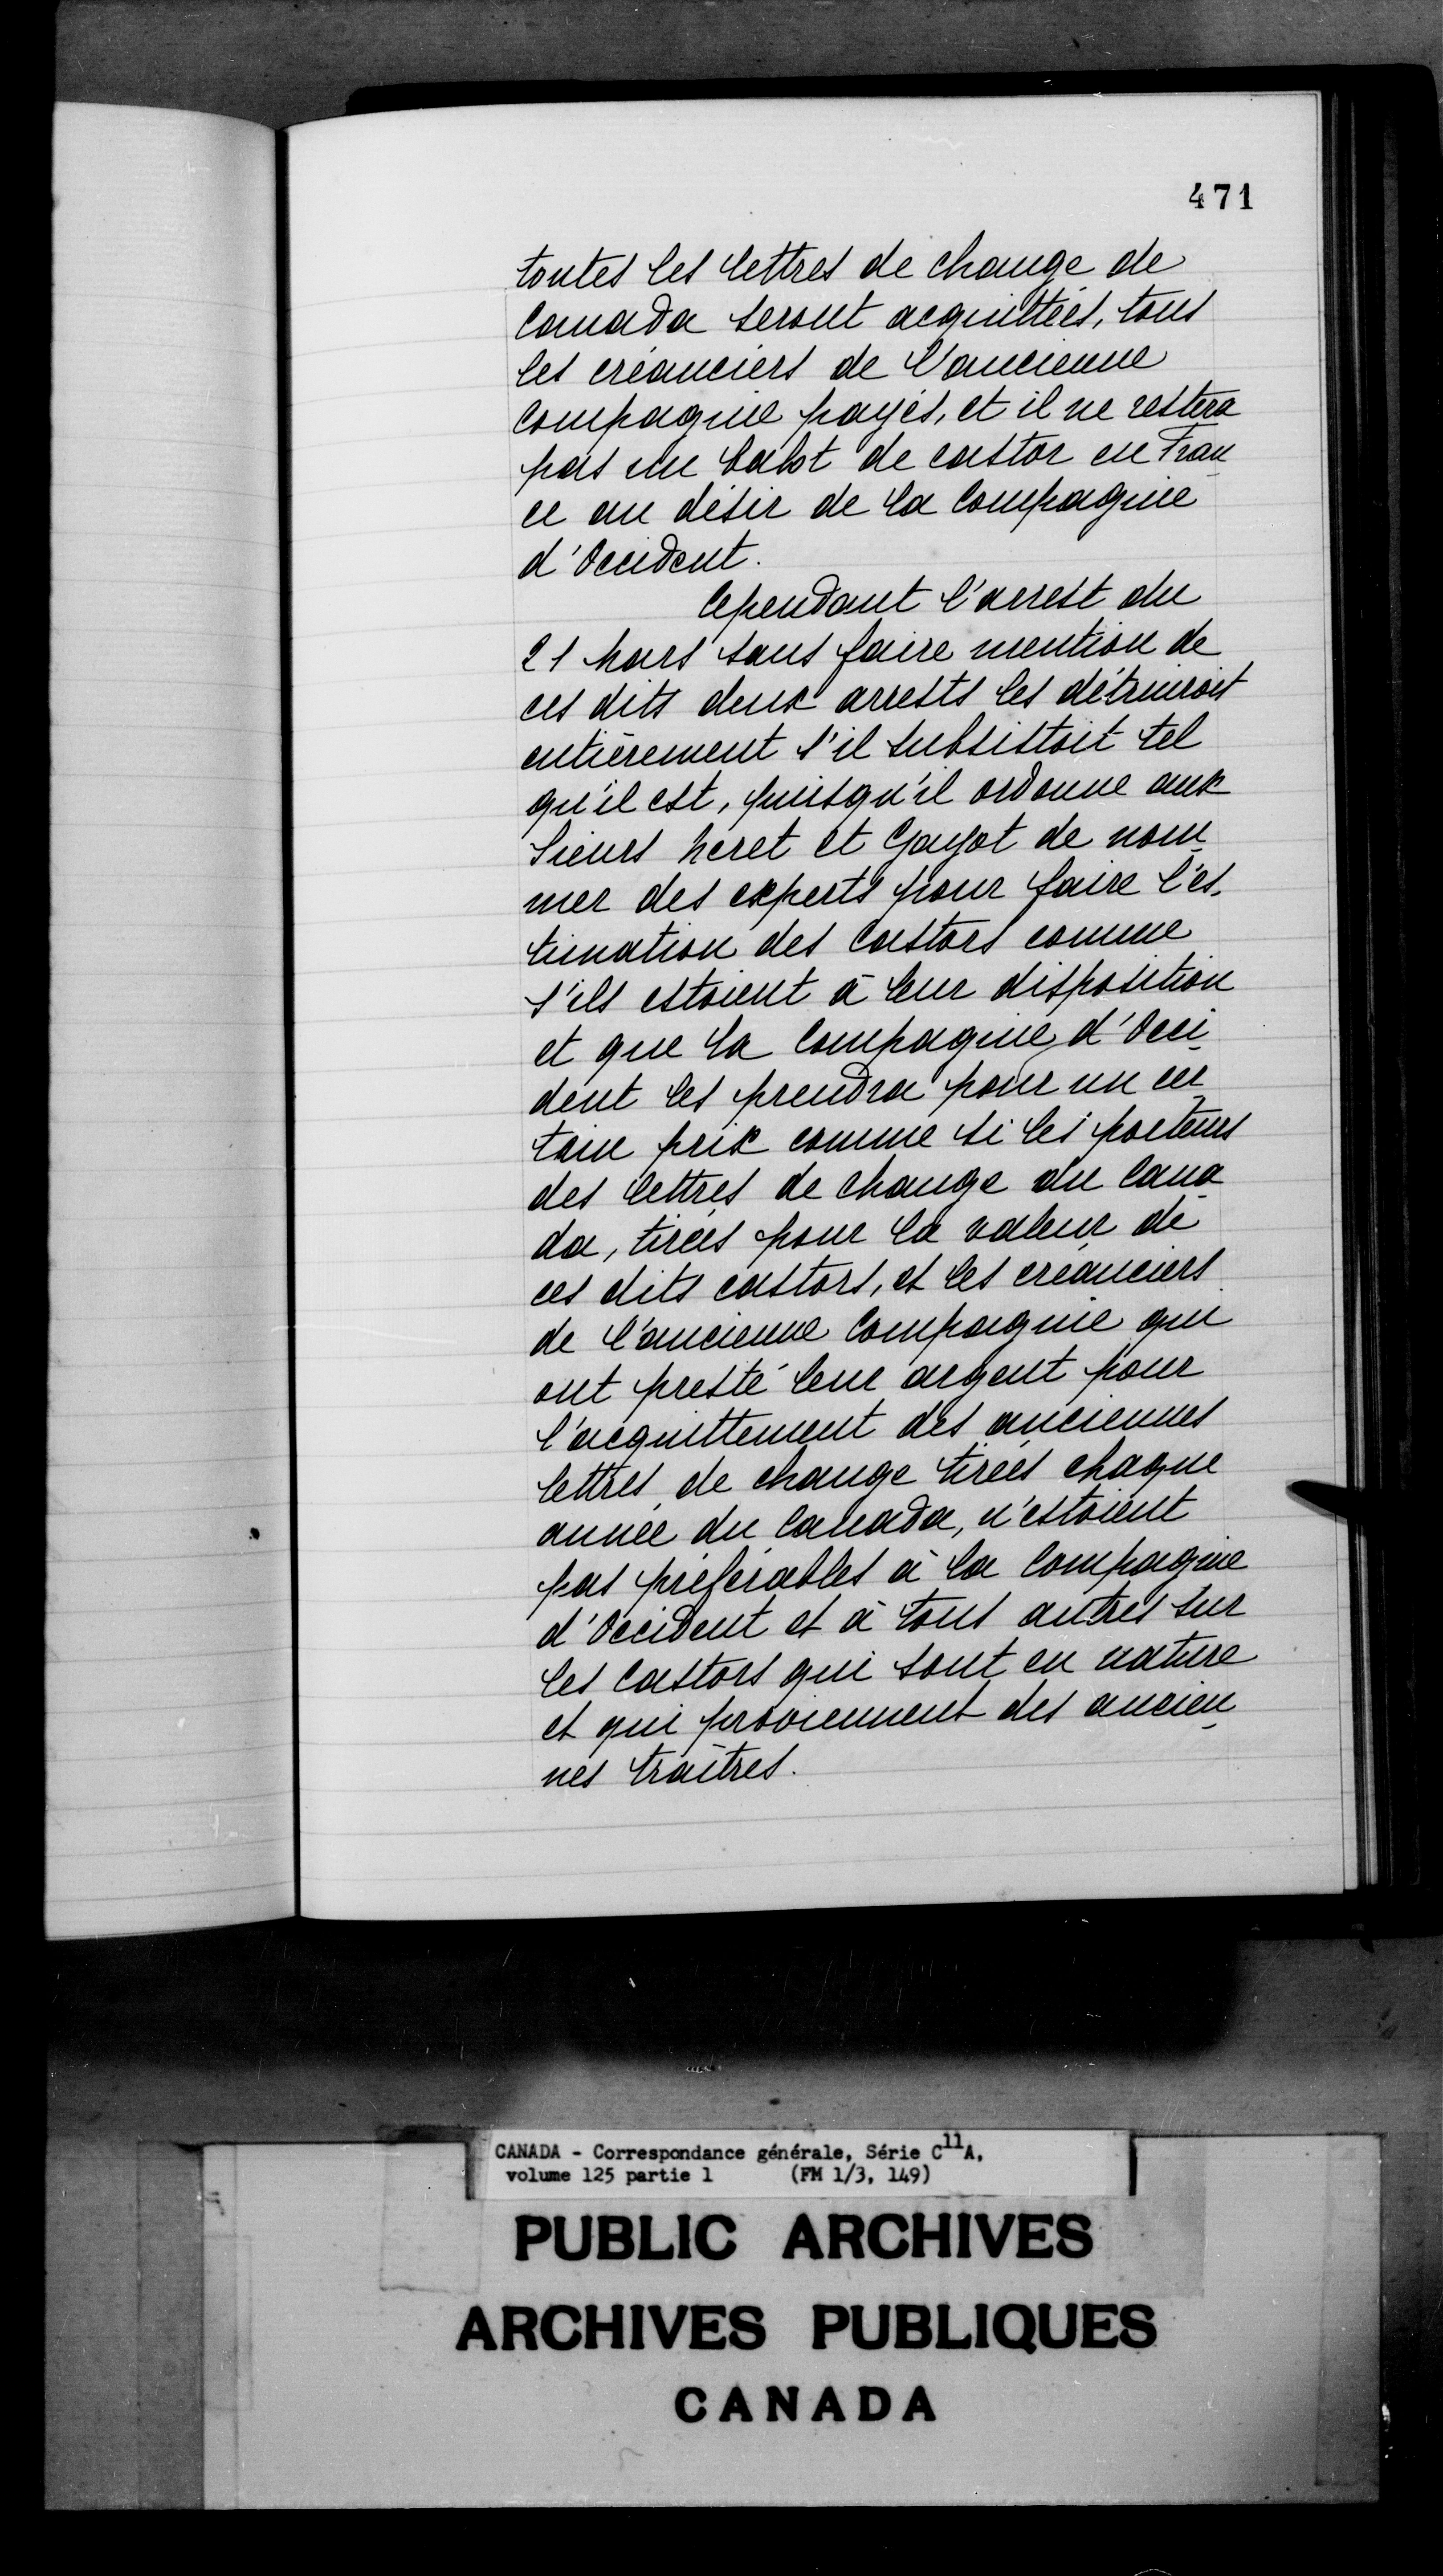 471
toutes les lettres de change de
Canada seront acquittées, tous
les créanciers de l'ancienne
Compagnie payés, et il ne restera
pas un balot de castor en Fran
ce au désir de la Compagnie
d'Occident.
Cependant l'arrest du
21 Mars sans faire mention de
ces dits deux arrests les détruiroit
entièrement s'il subsistoit tel
qu'il est, puisqu'il ordonne aux
Sieurs Neret et Gayot de nom
mer des experts pour faire l'es
timation des Castors comme
s'ils estoient à leur disposition
et que la Compagnie d'Occi
dent les prendra pour un cer
tain prix comme si les porteurs
des lettres de change du Cana
da, tirées pour la valeur de
ces dits castors, et les créanciers
de l'ancienne Compagnie qui
ont presté leur argent pour
l'acquittement des anciennes
lettres de change tirées chaque
année du Canada, n'estoient
pas préférables à la Compagnie
d'Occident et à tous autres sur
les Castors qui sont en nature
et qui proviennent des ancien
nes traîtres.
CANADA - Correspondance générale, Série C11A,
volume 125 partie 1 (FM 1/3, 149)
PUBLIC ARCHIVES
ARCHIVES PUBLIQUES
CANADA